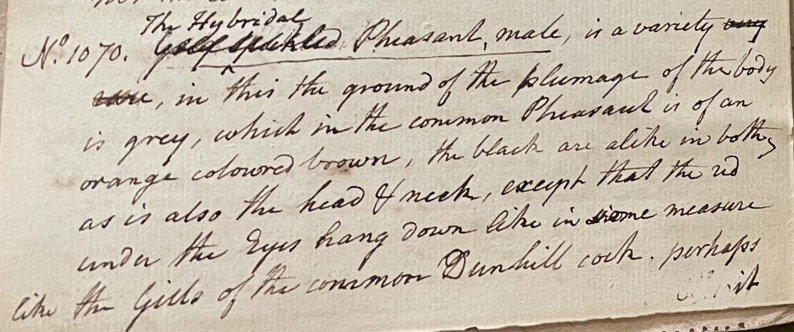 The Hybridal
No. 1070. Gold speckled Pheasant, male, is a variety very
rare, in this the ground of the plumage of the body
is grey, which in the common Pheasant is of an
orange coloured brown, the black are alike in both,
as is also the head & neck, except that the red
under the Eyes hang down like in some measure
like the Gills of the common Dunhill cock. perhaps
it